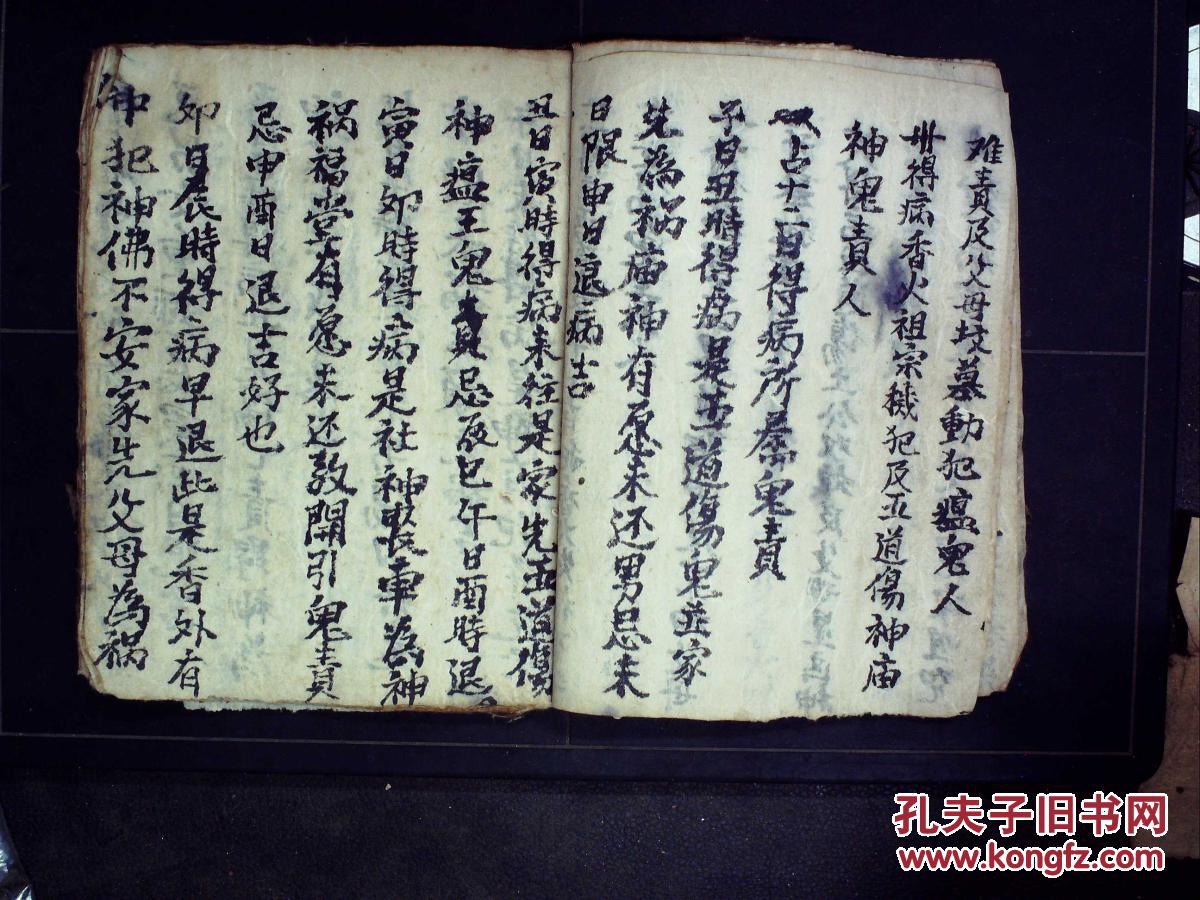 难責及父母坟墓動犯瘟鬼人
卅得病香火祖宗機犯及五道傷神庙
神鬼責人
占十二日得病所属鬼責
子日丑時得病是五道傷鬼並家
先為禍庙神有愿未还男忌未
日限申日退病吉
丑日寅時得病未往是家先五道傷
神瘟王鬼責忌辰巳午日酉時退
寅日卯時得病是社神丧車為神
祸福堂有愿未还敎開引鬼責
忌申酉日退吉好也
卯日辰時得病早退此是香外有
神犯神佛不安家先父母為祸
孔夫子旧书网
www.kongfz.com